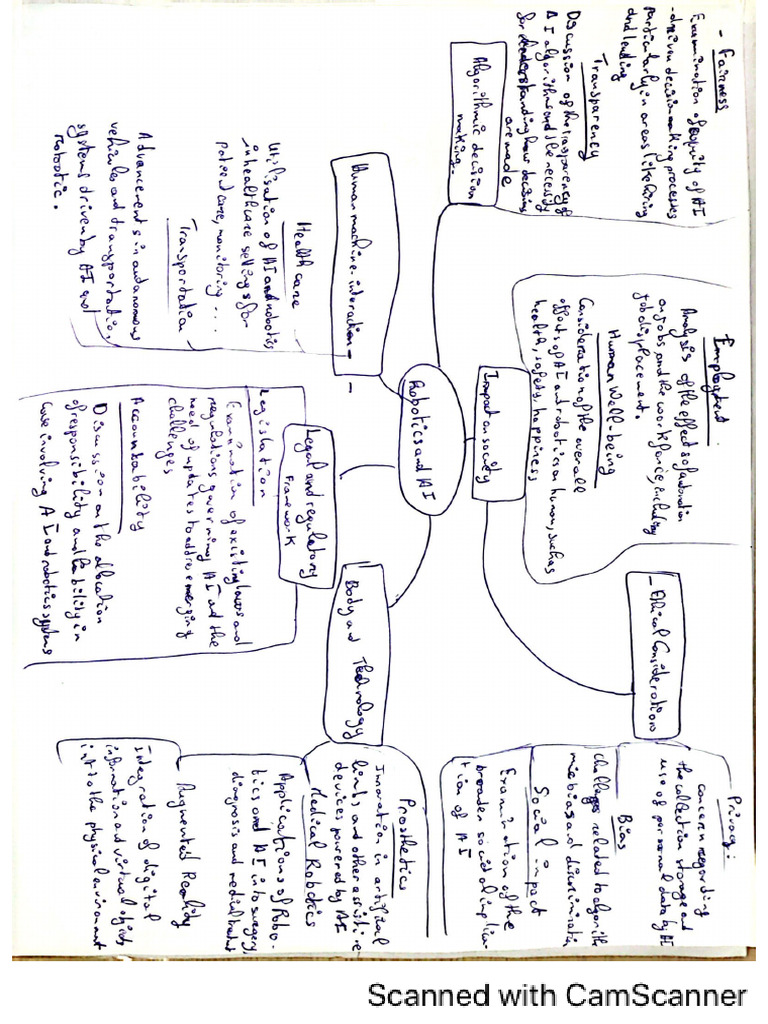 - Fairness
Examination of equity of AI
-driven decision making processes
particularly in areas like hiring
and lending
Transparency
Discussion of the transparency of
AI algorithms and the necessity
for understanding how decisions
are made
Algorithmic decision
making.
Employment.
Analysis of the effects of automation
on jobs and the workforce, including
job displacement.
Human Well-being
Consideration of the overall
effects of AI and robotics on human, such as
health, safety, happiness
Impact on society
- Ethical Considerations
Privacy:
concern regarding
the collection storage and
use of personal data by AI
Bias
challenges related to algorith
mic bias and discrimination
Social impact
Examination of the
broader societal implica-
tion of AI
Robotics and AI
Human machine-interaction-
Healthcare
Utilisation of AI and robotics
in healthcare settings for
patient care, monitoring ...
Transportation
Advancements in autonomous
vehicles and transportation,
systems driven by AI and
robotic.
Legal and regulatory
Framework
Legislation
Examination of existing laws and
regulations governing AI and the
need of updates to address emerging
challenges
Accountability
Discussion on the allocation
of responsibility and liability in
case involving AI and robotics systems
Body and Technology
Prosthetics
Innovation in artificial
limbs and other assistive
devices powered by AI
Medical Robotics
Applications of Robo-
tics and AI into surgery,
diagnosis and medical
Augmented Reality
Integration of digital
information and virtual objects
into the physical environment
Scanned with CamScanner